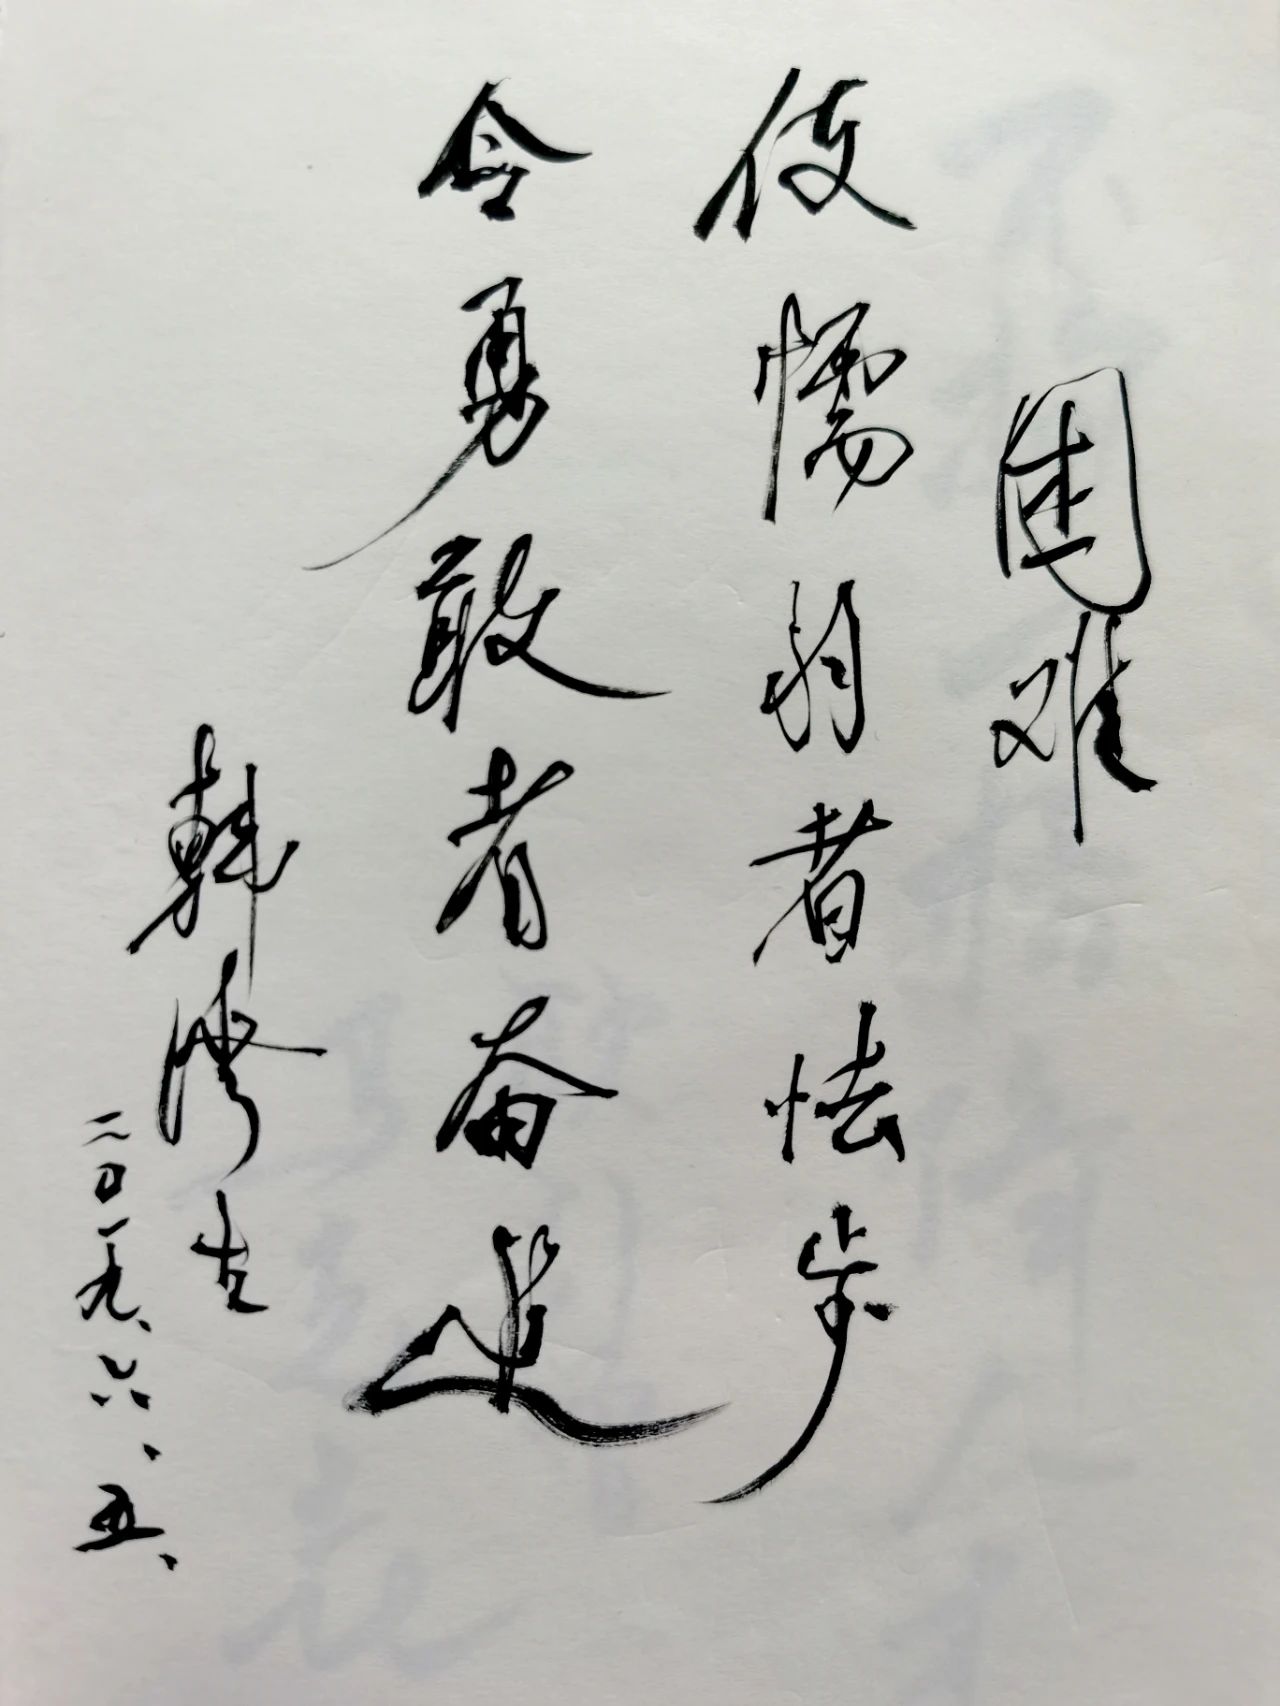 困难
使懦弱者怯步
令勇敢者奋进
韩湾生
二〇一九、六、五、